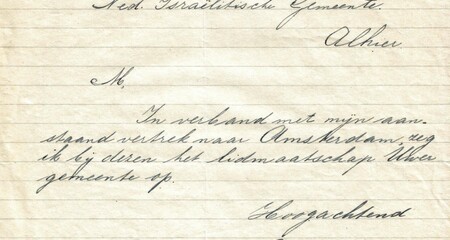 Ned. Israëlitische Gemeente.
Alhier.
M,
In verband met mijn aan-
staand vertrek naar Amsterdam, zeg
ik bij deren het lidmaatschap Uwer
gemeente op.
Hoogachtend